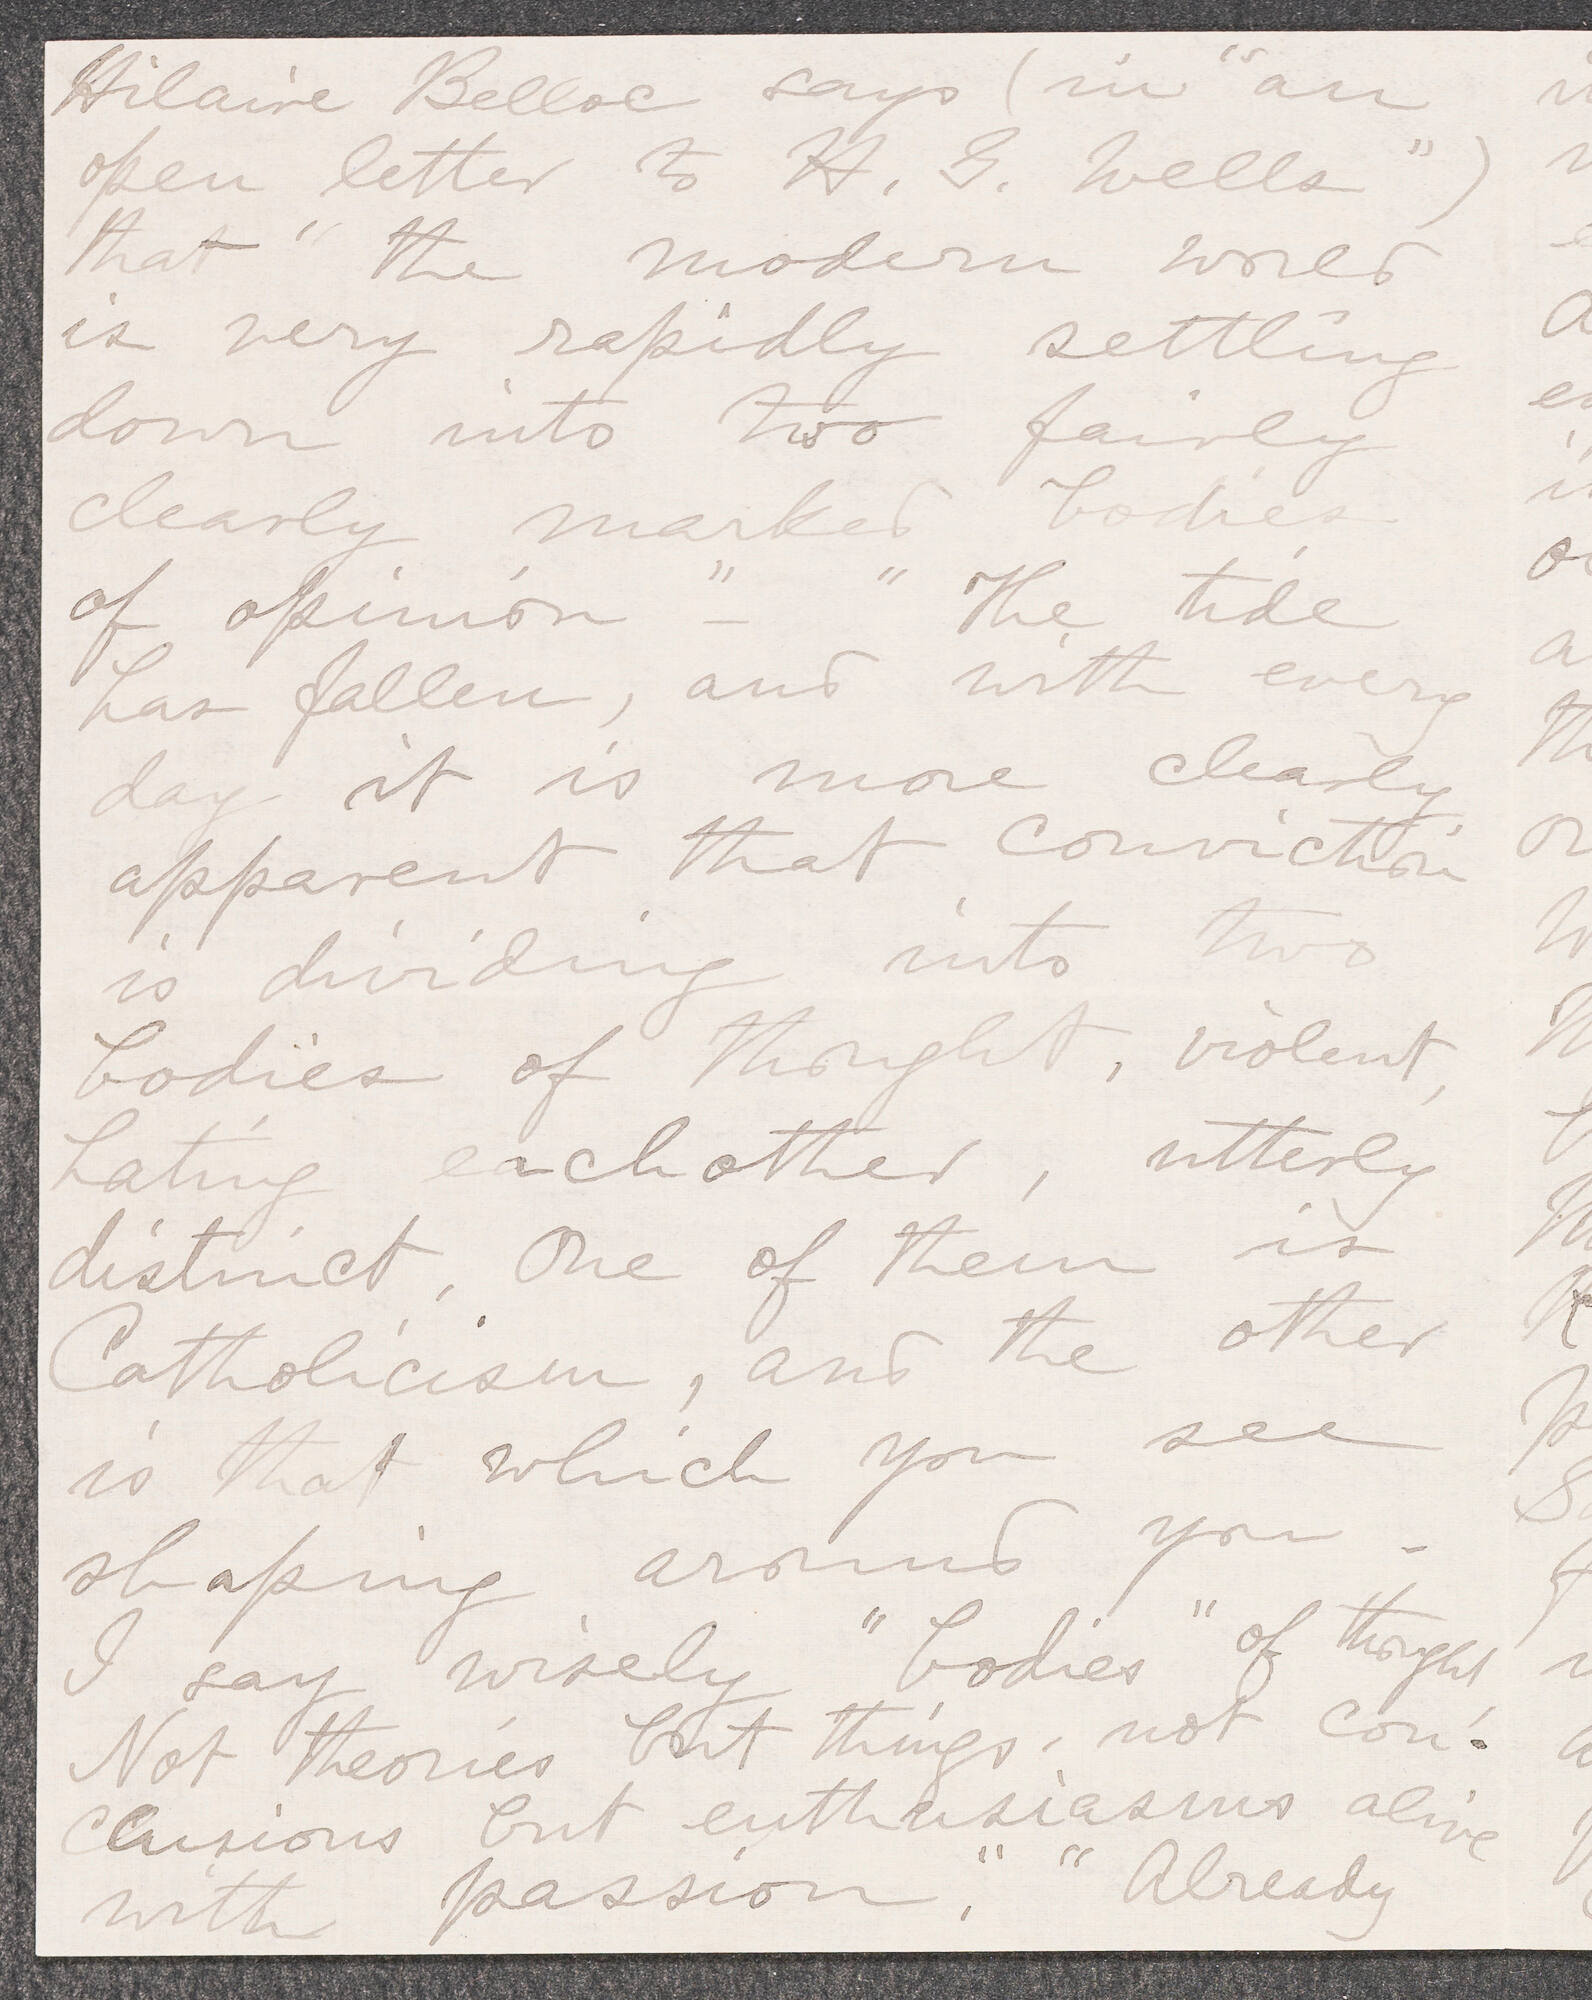 Hilaire Belloc says (in "an
open letter to H. G. Wells")
that "the modern world
is very rapidly settling
down into two fairly
clearly marked bodies
of opinion" - "The tide
has fallen, and with every
day it is more clearly
apparent that conviction
is dividing into two
bodies of thought, violent,
hating eachother, utterly
distinct. One of them is
Catholicism, and the other
is that which you see
shaping around you -
I say wisely "bodies" of thought
Not theories but things, not con-
clusions but enthusiasms alive
with passion." "Already